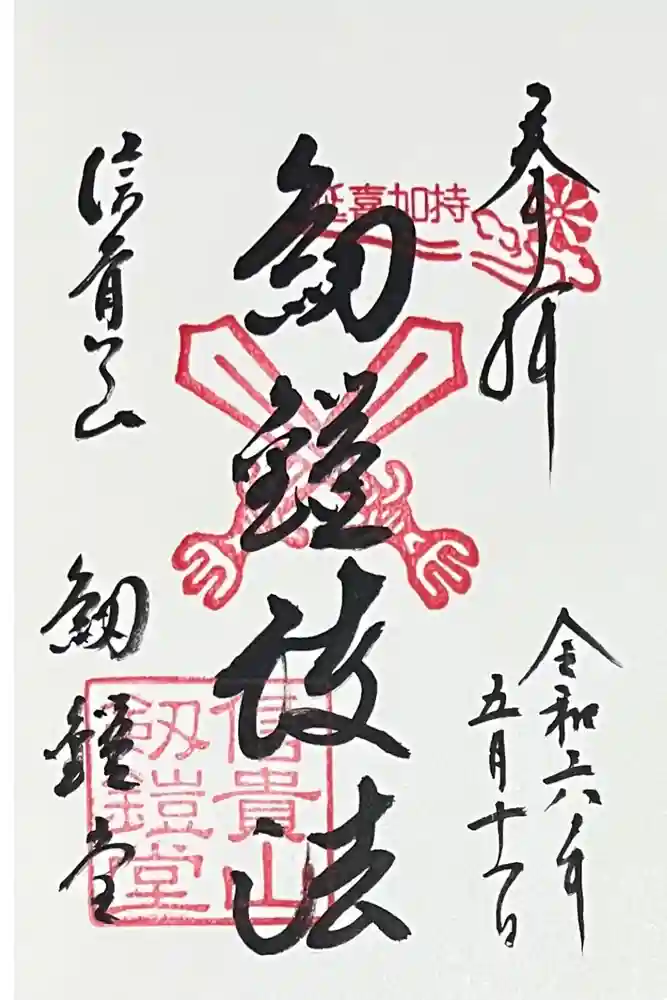 奉拝
延喜加持
令和六年
五月十一日
劔鎧護法
信貴山
劔鎧堂
信貴山
劔鎧堂